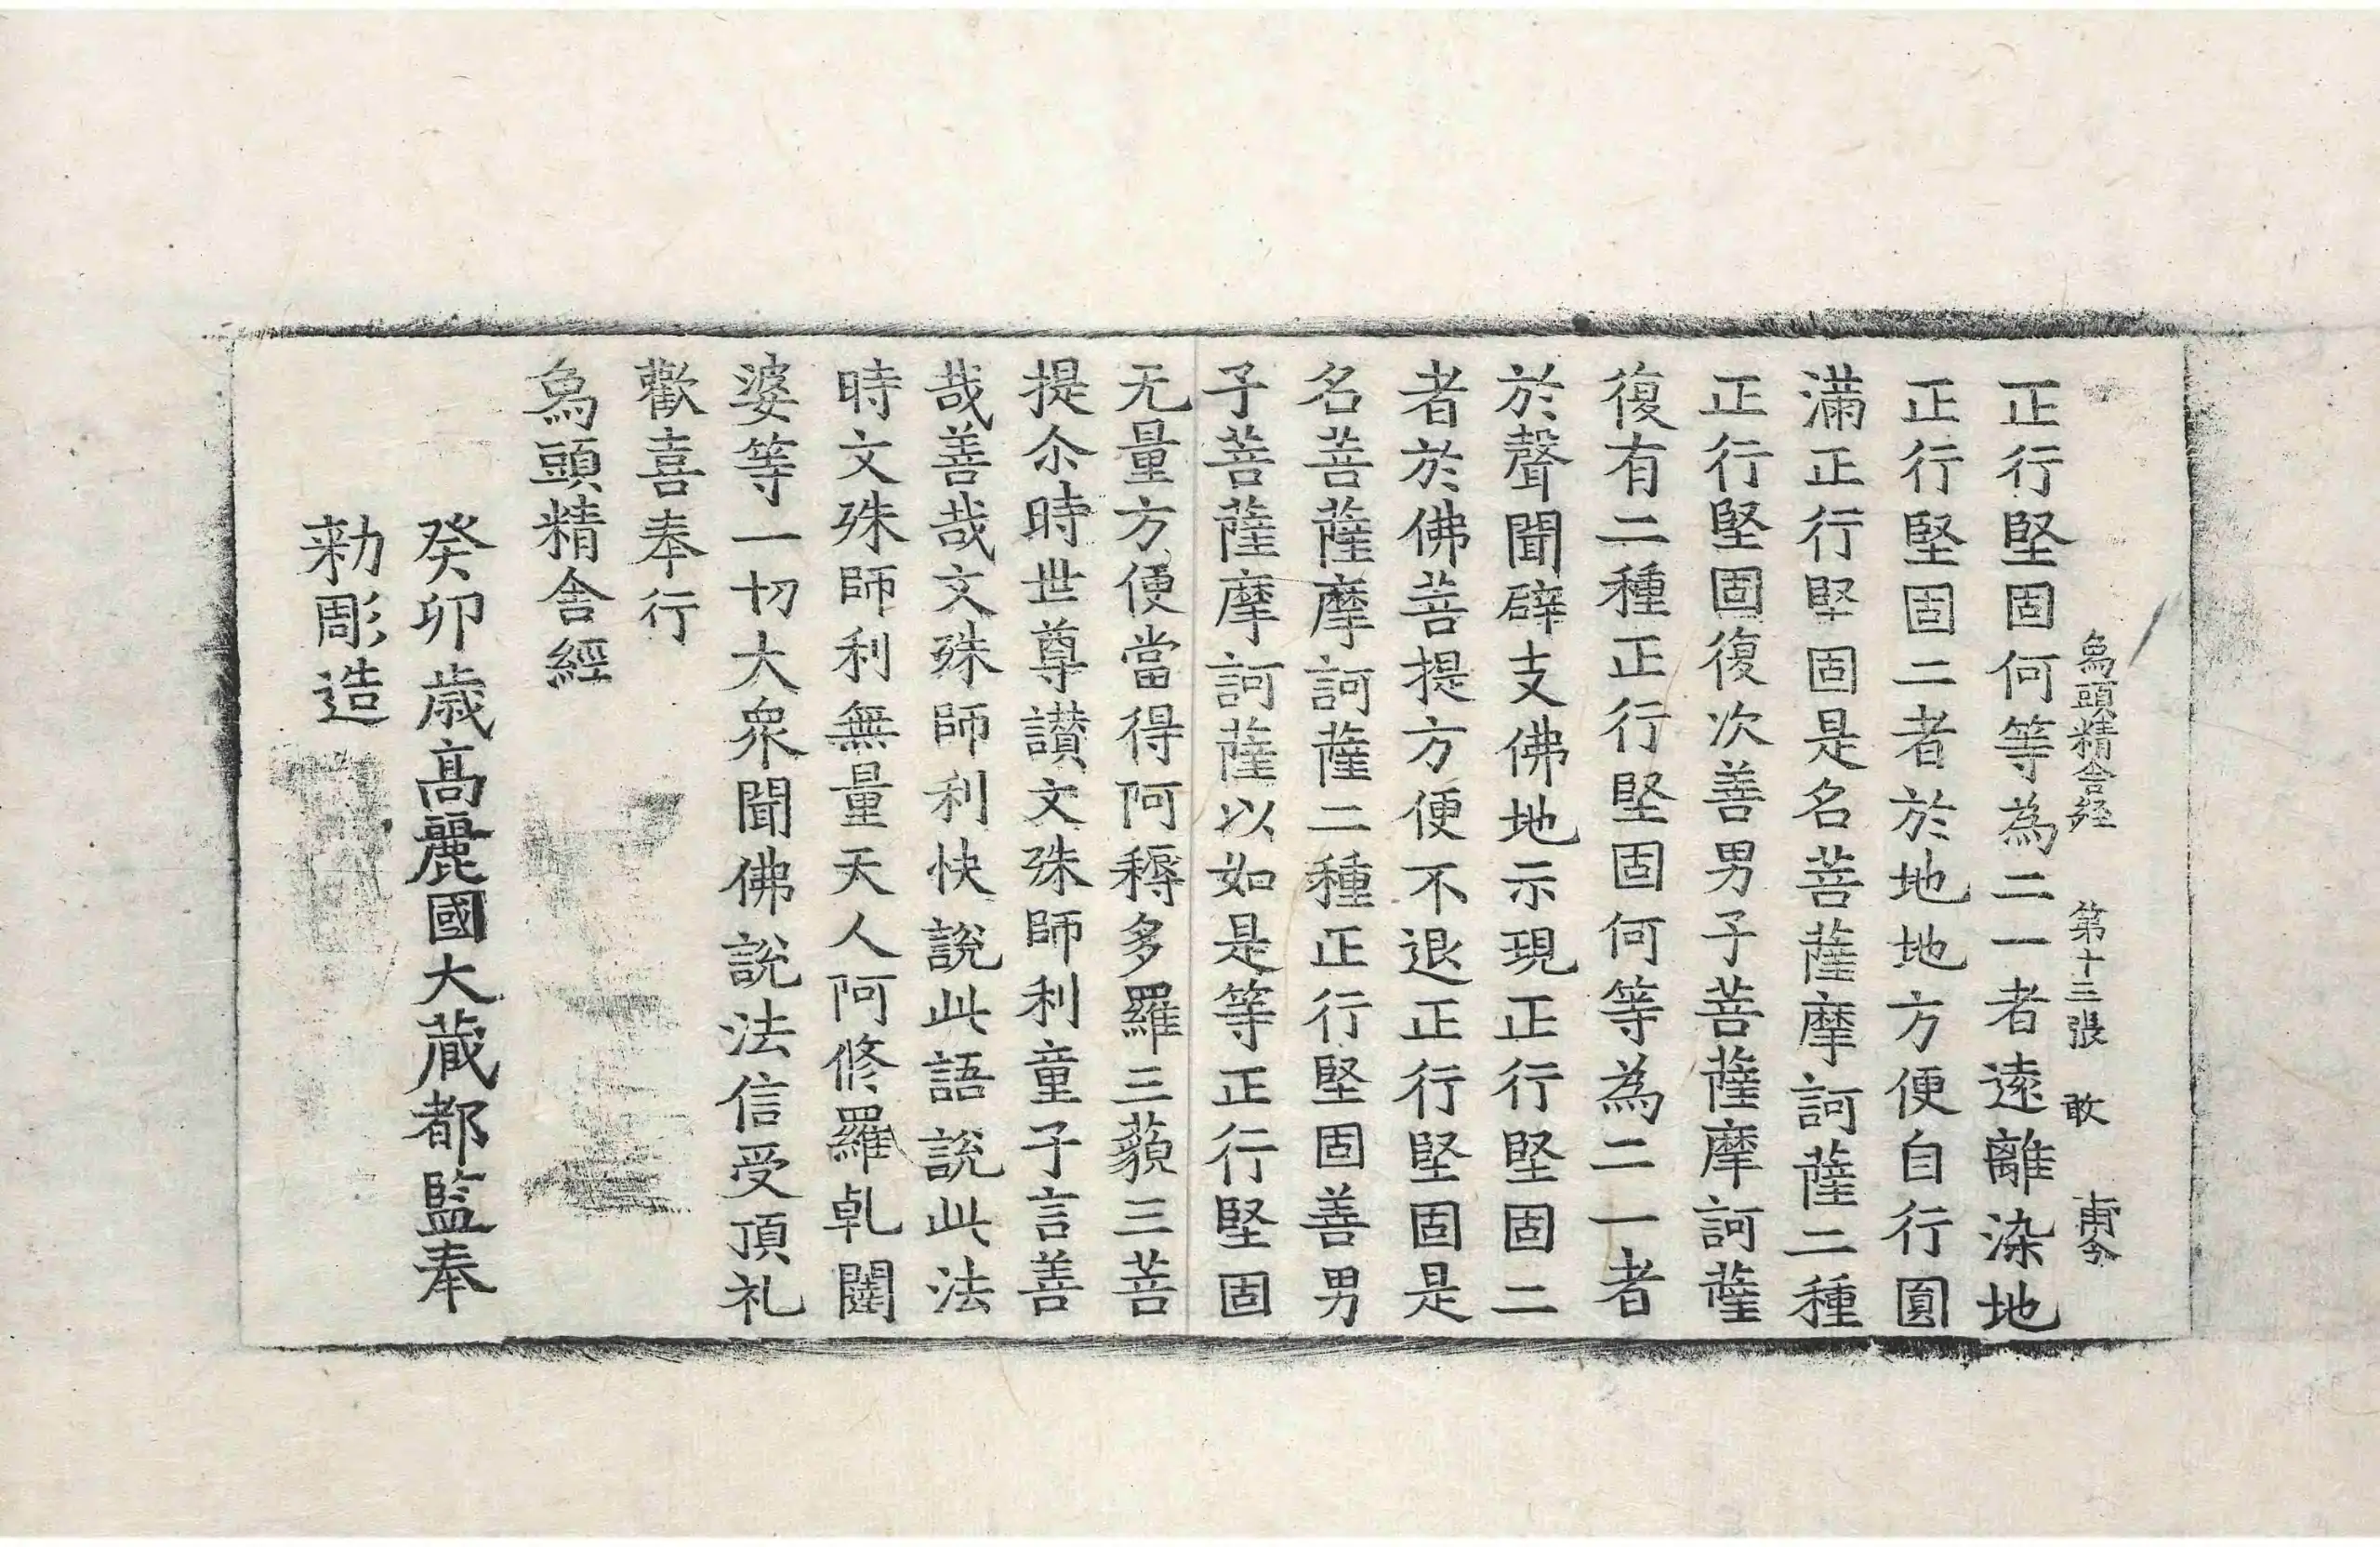 象頭精舍経 第十三張 敢
正行堅固何等為二一者遠離染地
正行堅固二者於地地方便自行圓
滿正行堅固是名菩薩摩訶薩二種
正行堅固復次善男子菩薩摩訶薩
復有二種正行堅固何等為二一者
於聲聞辟支佛地示現正行堅固二
者於佛菩提方便不退正行堅固是
名菩薩摩訶薩二種正行堅固善男
子菩薩摩訶薩以如是等正行堅固
无量方便當得阿耨多羅三藐三菩
提尒時世尊讃文殊師利童子言善
哉善哉文殊師利快說此語說此法
時文殊師利無量天人阿修羅乹闥
婆等一切大衆聞佛說法信受頂礼
歡喜奉行
象頭精舍經
癸卯歳高麗國大蔵都監奉
勑彫造